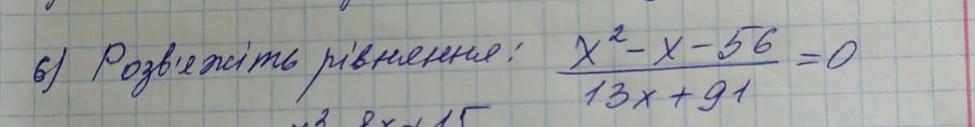 6) Розв'яжіть рівняння: x² - x - 56 / 13x + 91 = 0